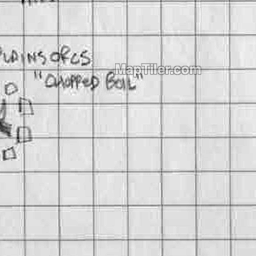 PLAINS ORCS
"CHOPPED BOIL"
MapTiler.com